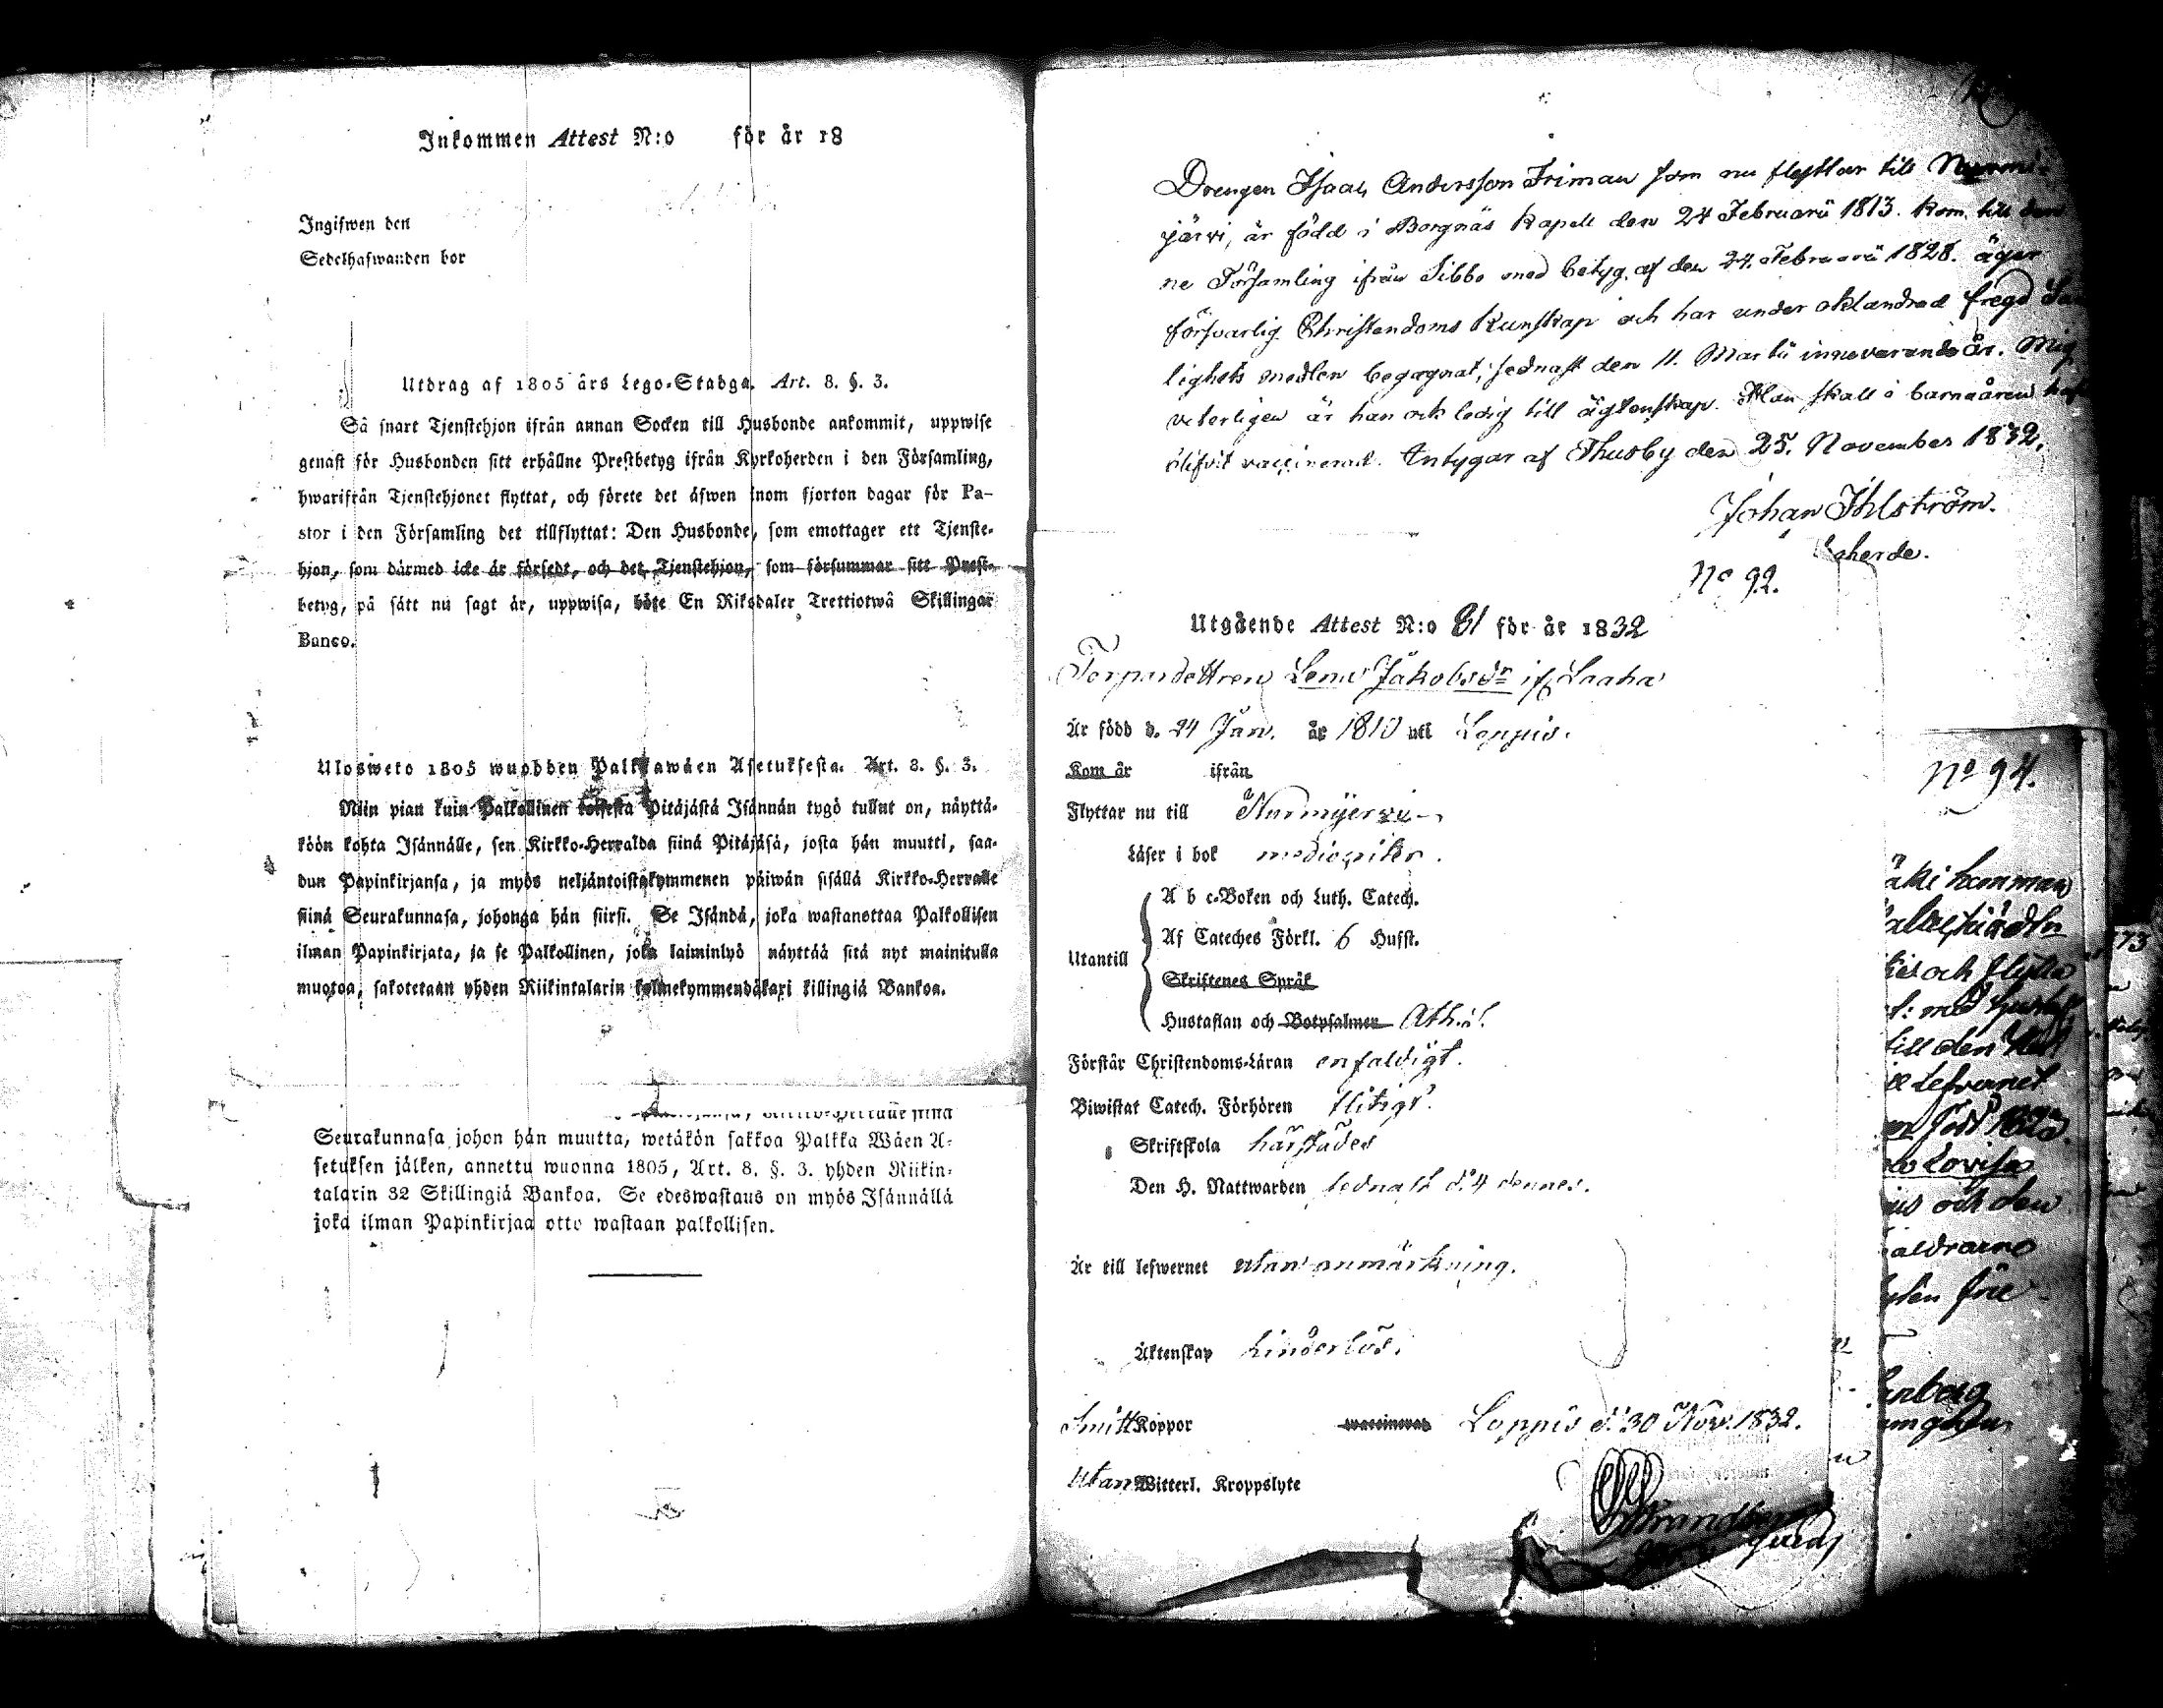 Inkommen Attest N:o för år 18
Ingifwen den
Sedelhafwanden bor
Utdrag af 1805 års Lego-Stadga. Art. 8. §. 3.
Så snart Tjenstehjon ifrån annan Socken till Husbonde ankommit, uppwise
genast för Husbonden sitt erhållne Prestbetyg ifrån Kyrkoherden i den Församling,
hwarifrån Tjenstehjonet flyttat, och förete det äfwen inom fjorton dagar för Pa-
stor i den Församling det tillflyttat: Den Husbonde, som emottager ett Tjenste-
hjon, som därmed icke är försedt, och det Tjenstehjon, som försummar sitt Prest-
betyg, på sätt nu sagt är, uppwisa, böte En Riksdaler Trettiotwå Skillingar
Banco.
Ulosweto 1805 wuodden Palkkawäen Asetuksesta. Art. 8. §. 3.
Niin pian kuin Palkollinen toisesta Pitäjästä Isännän tygö tullut on, näyttä-
köön kohta Isännälle, sen Kirkko-Herralda siinä Pitäjäsä, josta hän muutti, saa-
dun Papinkirjansa, ja myös neljäntoistakymmenen päiwän sisällä Kirkko-Herralle
siinä Seurakunnasa, johonga hän siirsi. Se Isändä, joka wastanottaa Palkollisen
ilman Papinkirjata, ja se Palkollinen, joka laiminlyö näyttää sitä nyt mainitulla
muotoa, sakotetaan yhden Riikintalarin kolmekymmendäkaxi killingiä Bankoa.
Seurakunnasa johon hän muutta, wetäkön sakkoa Palkka Wäen A-
setuksen jälken, annettu wuonna 1805, Art. 8. §. 3. yhden Riikin-
talarin 32 Skillingiä Bankoa. Se edeswastaus on myös Isännällä
joka ilman Papinkirjaa otto wastaan palkollisen.
Drengen Isaac Andersson Friman som nu flyttar till Nurmi-
järvi, är född i Borgnäs Kapell den 24 Februarii 1813. Kom till den
ne Församling ifrån Sibbo med betyg af den 24. Februarii 1828. äger
försvarlig Christendoms Kunskap och har under oklandrad fregd
lighets medlen begagnat, sednast den 11. Martii innevarande år. Mig
veterligen är han och ledig till ägtenskap. Han skall i barnaåren
blifvit vaccinerad. Intygar af Thusby den 25. November 1832.
Johan Ihlström.
N° 92.
Utgående Attest N:o 81 för år 1832
Torpardottren Lena Jakobsdr if. Laaha
Är född d. 24 Jan. år 1810 uti Loppis.
Kom år ifrån
Flyttar nu till Nurmijerwi
Läser i bok mediocriter.
Utantill
A b c-Boken och Luth. Catech.
Af Cateches Förkl. 6 Hufst.
Skriftenes Språk
Hustaflan och Botpsalmer Ath.
Förstår Christendoms-Läran enfaldigt.
Biwistat Catech. Förhören flitigt.
Skriftskola härstädes
Den H. Nattwarden sednast d. 4 dennes.
Är till lefwernet utan anmärkning.
Äktenskap hinderlös.
Smitt Koppor waccinerad Loppis d. 30 Nov. 1832.
Utan Witterl. Kroppslyte
N° 94.
och flytta
till den
Lefvernet
Lovisa
och den